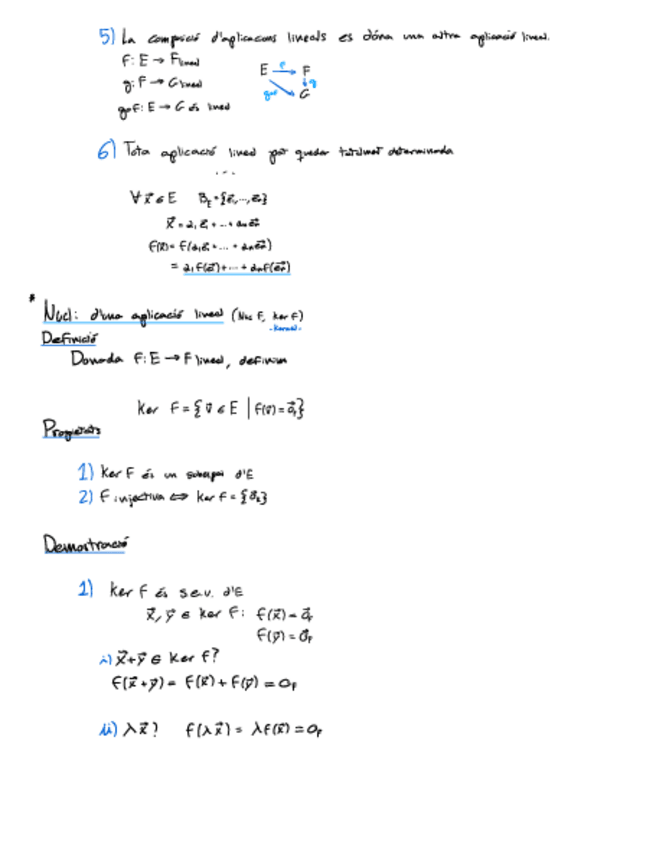 5) La composició d'aplicacions lineals es dóna una altra aplicació lineal.
f: E → F lineal
g: F → G lineal
g∘f: E → G és lineal
E f F
g∘f g
G
6) Tota aplicació lineal pot quedar totalment determinada
...
∀ x⃗ ∈ E B_E = {e⃗₁, ..., e⃗ₙ}
x⃗ = a₁e⃗₁ + ... + aₙe⃗ₙ
f(x⃗) = f(a₁e⃗₁ + ... + aₙe⃗ₙ)
= a₁f(e⃗₁) + ... + aₙf(e⃗ₙ)
* Nucli d'una aplicació lineal (Nuc f, ker f)
-kernel-
Definició
Donada f: E → F lineal, definim
Ker f = {v⃗ ∈ E | f(v⃗) = 0⃗_F}
Propietats
1) Ker f és un subespai d'E
2) f injectiva ⇔ Ker f = {0⃗_E}
Demostració
1) Ker f és s.e.v. d'E
x⃗, y⃗ ∈ Ker f: f(x⃗) = 0⃗_F
f(y⃗) = 0⃗_F
i) x⃗+y⃗ ∈ Ker f?
f(x⃗+y⃗) = f(x⃗) + f(y⃗) = 0_F
ii) λx⃗? f(λx⃗) = λf(x⃗) = 0_F